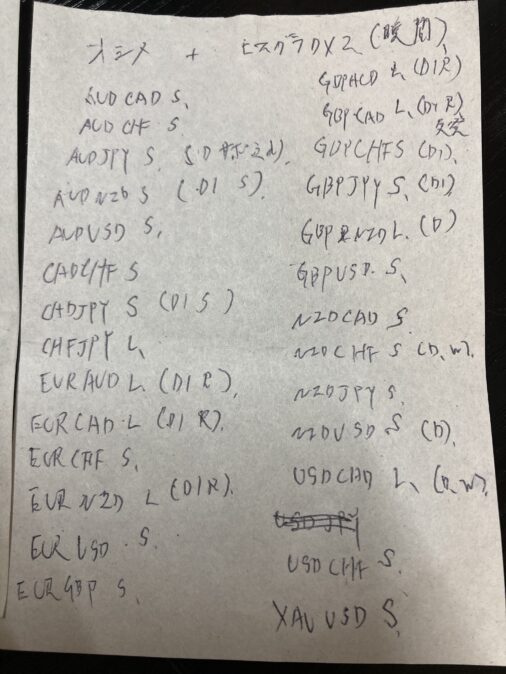 オシメ + ヒスグラDX2 (晩間)
AUD CAD S.
AUD CHF S
AUDJPY S. (D
AUD NZD S (DI S).
AUDUSD S.
CADCHF S
CADJPY S (DI S)
CHFJPY L.
EURAUD L (DI R).
EURCAD L (DI R).
EURCHF S.
EUR NZD L (DIR).
EURUSD S.
EURGBP S.
L (DIR)
GBPCAD L. (DIR)
GBPCHF S (DI).
GBPJPY S. (DI)
GBP NZD L. (D)
GBPUSD. S.
NZDCAD S.
NZDCHF S (D, W).
NZDJPY S.
NZDUSD S (D).
USDCAD L. (D, W).
USD JPY
USDCHF S.
XAU USD S.